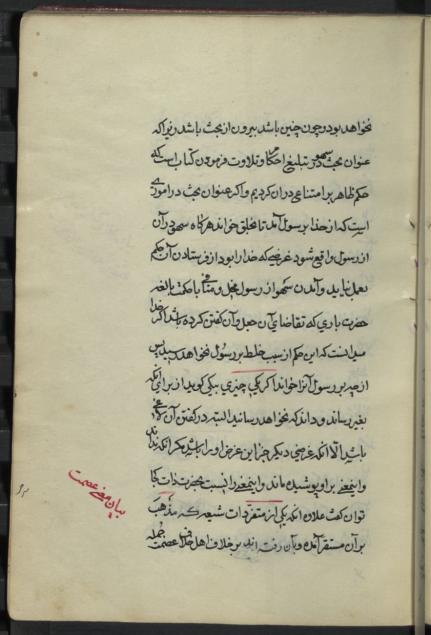 نخواهد بود و چون چنین باشد بیرون از بحث باشد زیرا که
عنوان بحث در سهو تبلیغ احکام و تلاوت فرمودن کتاب است که
حکم ظاهر بر امتناعی دران کردیم و اگر عنوان بحث در اموری
است که از خدا بر رسول آمد تا بخلق خواند هرگاه سهو در آن
از رسول واقع شود غرضی که خدا را بود از فرستادن آن حکم
بعمل نیاید و آمدن سهو از رسول مخل و منافی با حکمت بالغه
حضرت باری که تقاضای آن حمل و آن گفتن کرده باشد اگر خدا
میدانست که این حکم از سبب خلط بر رسول نخواهد رسید پس
از چه بر رسول آنرا خواند اگر یکی چیزی بیکی گوید از برای آنکه
بغیر رساند و داند که نخواهد رسانید البته در گفتن آن
باشد الا آنکه غرضی دیگر جز این غرض او را باشد مگر آنکه نداند
و اینمعنی بر او پوشیده ماند و اینمعنی را نسبت بحضرت ذات کجا
توان گفت علاوه آنکه یکی از متفردات شیعه که مذهب
بر آن مستقر آمده و بآن رفته اند بر خلاف اهل خلاف عصمت
بیان معنی عصمت